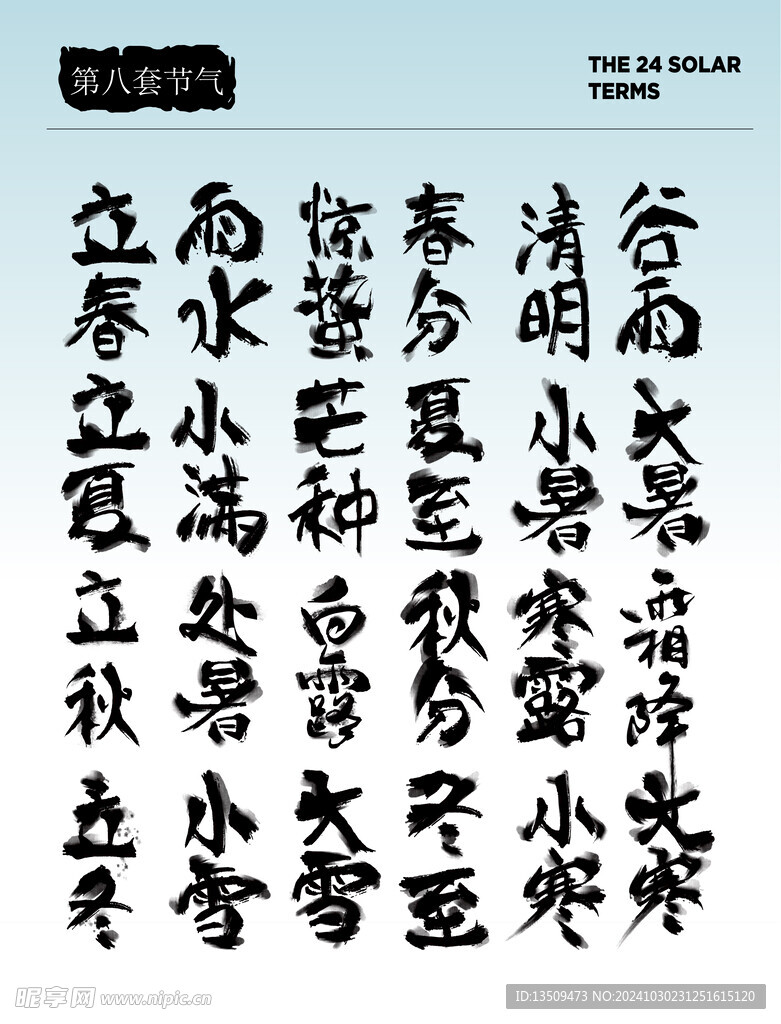 第八套节气
THE 24 SOLAR
TERMS
立春 雨水 惊蛰 春分 清明 谷雨
立夏 小满 芒种 夏至 小暑 大暑
立秋 处暑 白露 秋分 寒露 霜降
立冬 小雪 大雪 冬至 小寒 大寒
昵享网 www.nipic.cn
ID:13509473 NO:20241030231251615120